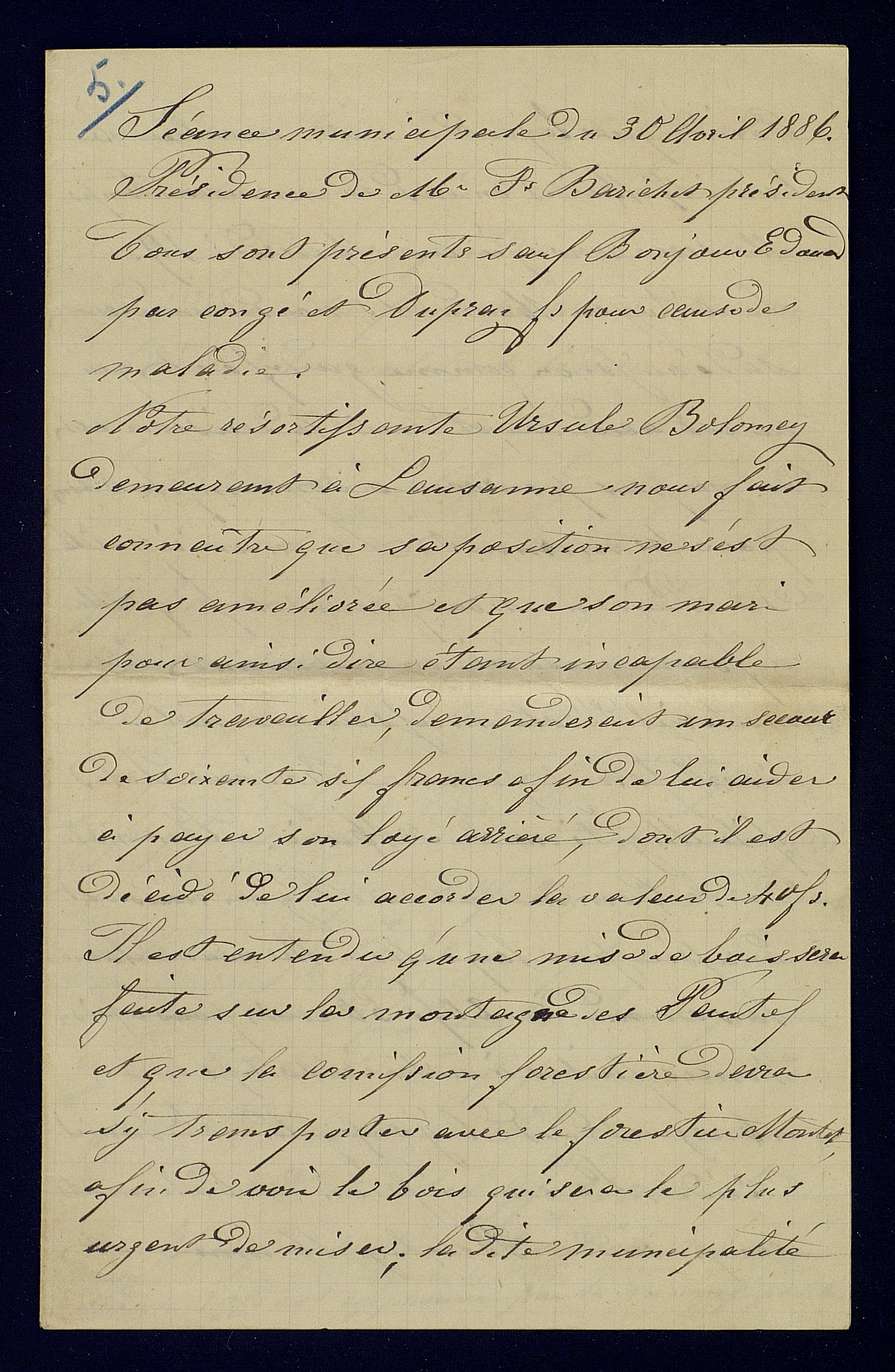 5.
Séance municipale du 30 Avril 1886.
Présidence de Mr Fs Barichet président
Tous sont présents sauf Bonjour Edouard
par congé et Dupraz fs pour cause de
maladie.
Notre résortissante Ursule Bolomey
demeurant à Lausanne nous fait
connaître que sa position ne s'ést
pas améliorée et que son mari
pour ainsi dire étant incapable
de travailler, demanderait un secour
de soixante six francs afin de lui aider
à payer son loyé arriéré, dont il est
décidé de lui accorder la valeur de 40 fs.
Il est entendu q'une mise de bois sera
faite sur la montagne des
et que la comission forestière devra
s'y transporter avec le forestier Montet,
afin de voir le bois qui sera le plus
urgent de miser; la dite municipalité